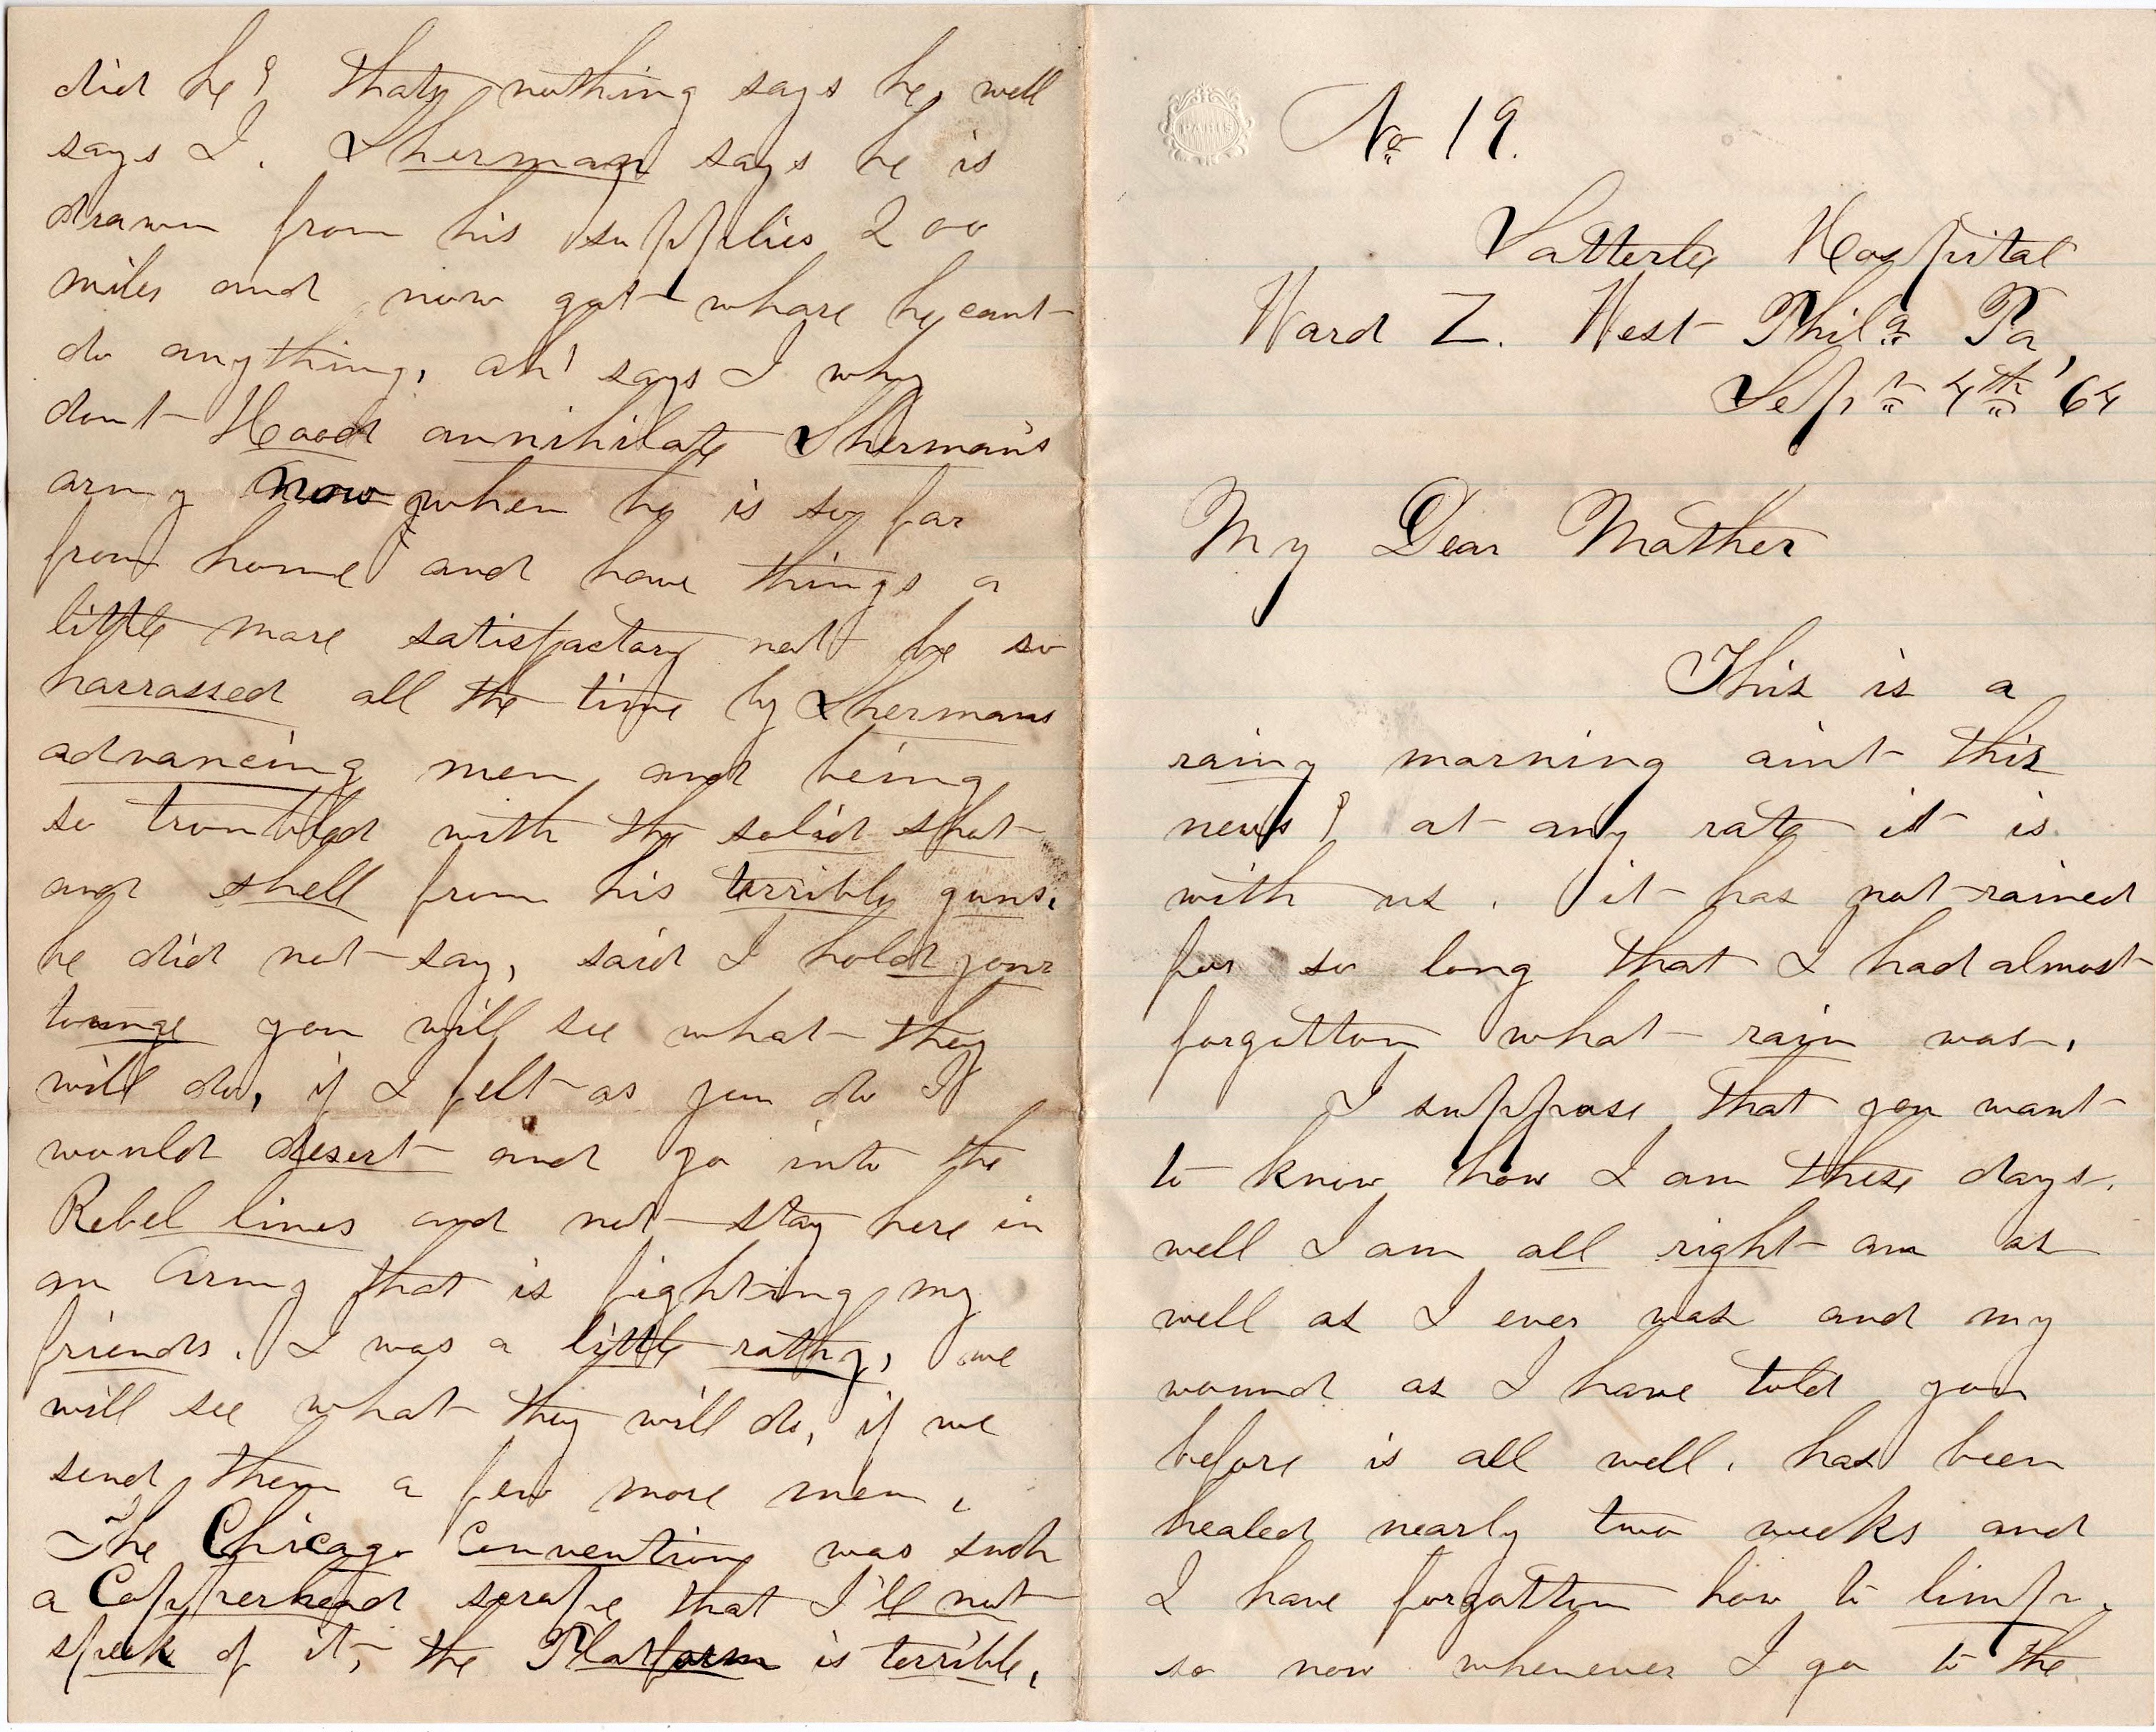 did he? thats nothing says he, well
says I. Sherman says he is
drawn from his supplies 200
miles and now got whare he cant
do anything, ah! says I why
dont Hood annihilate Sherman's
army now when he is so far
from home and have things a
little more satisfactory not be so
harrassed all the time by Shermans
advancing men, and being
so troubled with the solid shot
and shell from his terrible guns.
he did not say, said I hold your
tounge you will see what they
will do, if I felt as you do I
would desert and go into the
Rebel lines and not stay here in
an Army that is fighting my
friends. I was a little rathy, we
will see what they will do, if we
send them a few more men.
The Chicago Convention was such
a Copperhead scrape that I'll not
speek of it, the Platform is terrible.
PARIS
No 19.
Satterlee Hospital
Ward Z. West Phila Pa,
Sept 4th '64
My Dear Mother
This is a
rainy morning aint this
news? at any rate it is
with us. it has not rained
for so long that I had almost
forgotton what rain was.
I suppose that you want
to know how I am these days.
well I am all right am as
well as I ever was and my
wound as I have told you
before is all well. has been
healed nearly two weeks and
I have forgotton how to limp.
so now whenever I go to the